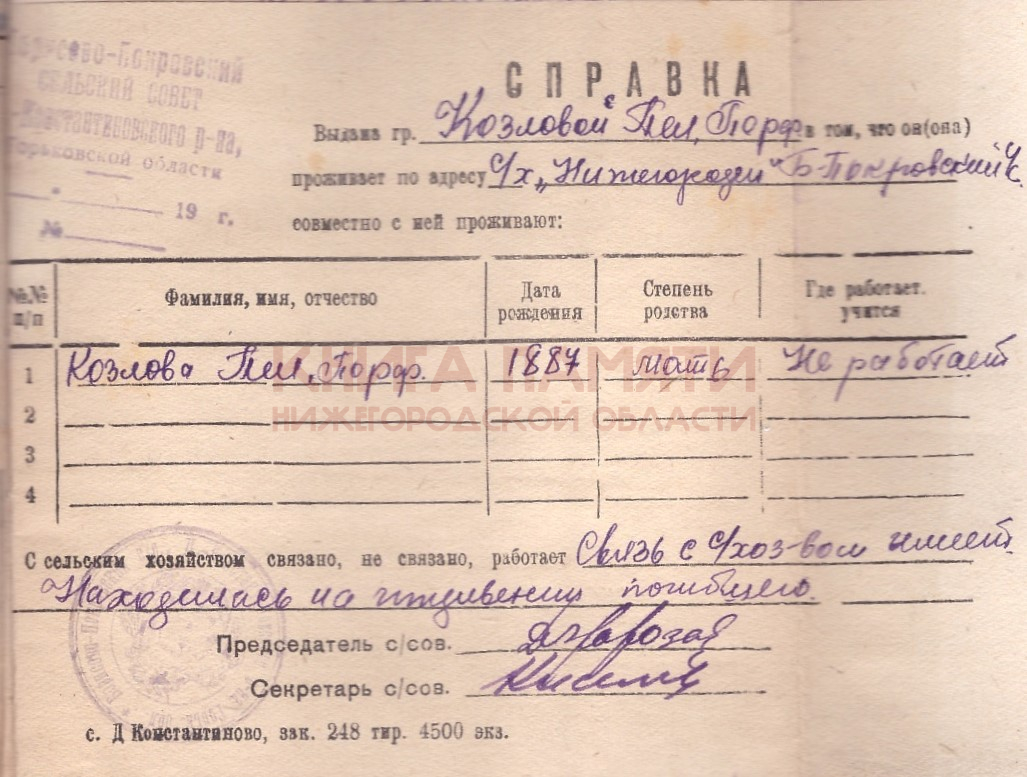 Покровский
СЕЛЬСКИЙ СОВЕТ
Константиновского р-на,
Горьковской области
19 г.
№
СПРАВКА
Выдана гр. Козловой Пел. Порф. в том, что он(она)
проживает по адресу с/х „Нижегородец" Б-Покровский
совместно с ней проживают:
№№ п/п
Фамилия, имя, отчество
Дата рождения
Степень родства
Где работает. учится
1 Козлова Пел. Порф. 1887 мать Не работает
2
3
4
КНИГА ПАМЯТИ
НИЖЕГОРОДСКОЙ ОБЛАСТИ
С сельским хозяйством связано, не связано, работает Связь с с/хоз-вом имеет.
Находилась на иждивении погибшего.
Председатель с/сов.
Секретарь с/сов.
с. Д Константиново, зак. 248 тир. 4500 экз.